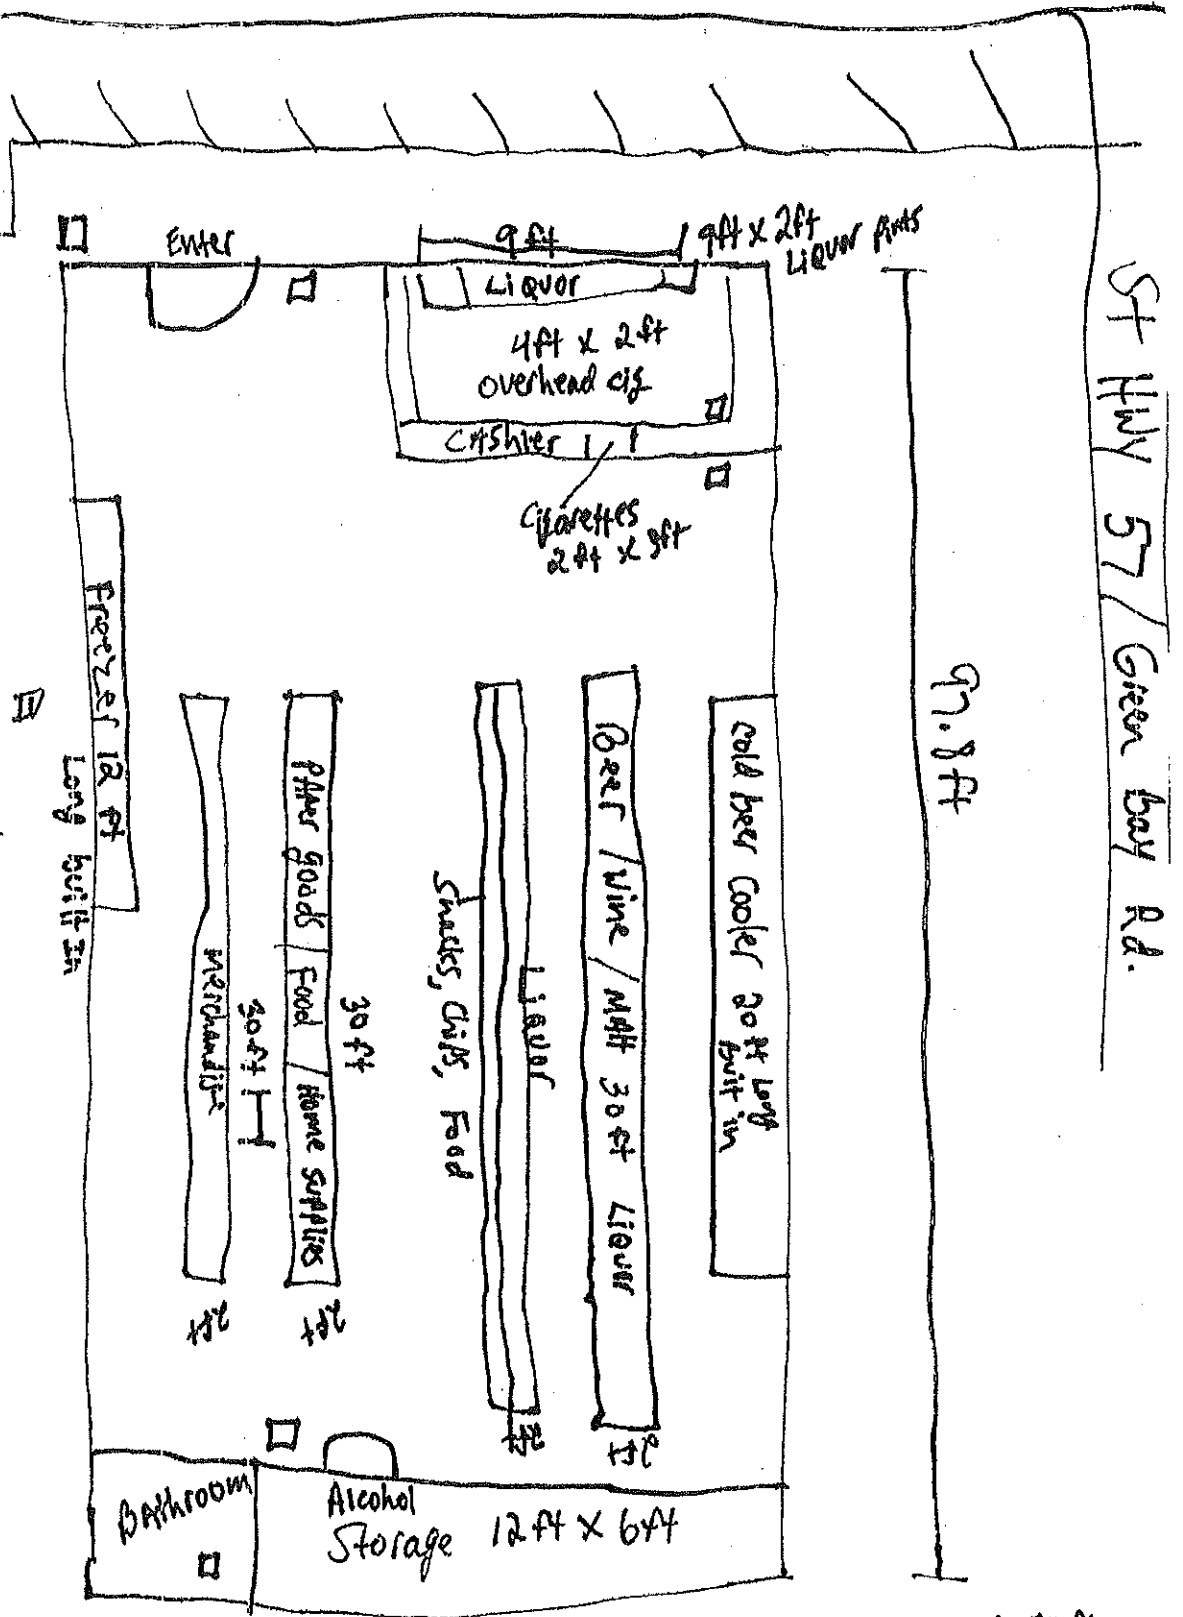 Enter
9ft
9ft x 2ft
Liquor Pints
Liquor
4ft x 2ft
overhead cig
Cashier
Cigarettes
2ft x 3ft
St Hwy 57 / Green bay Rd.
97.8ft
Freezer 12 ft
Long built In
Merchandise
30ft
Paper goods / Food / Home supplies
30ft
Snacks, Chips, Food
Liquor
Beer / Wine / Malt 30ft Liquor
cold beer cooler 20ft Long
built in
2ft
2ft
2ft
2ft
Bathroom
Alcohol
Storage 12ft x 6ft